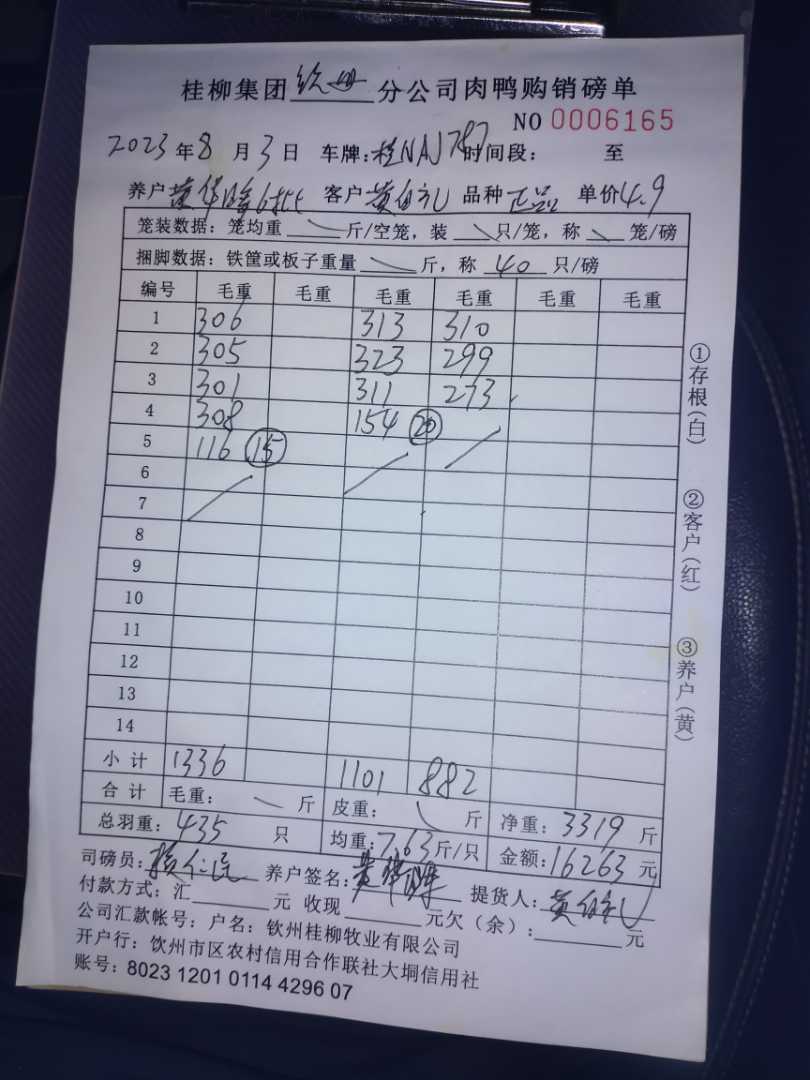 桂柳集团 钦州 分公司肉鸭购销磅单
NO 0006165
2023年8月3日 车牌:桂NAJ787 时间段: 至
养户 黄华 6批 客户 黄 礼 品种 正品 单价4.9
笼装数据: 笼均重 \ 斤/空笼, 装 \ 只/笼, 称 \ 笼/磅
捆脚数据: 铁筐或板子重量 \ 斤, 称 40 只/磅
编号 毛重 毛重 毛重 毛重 毛重 毛重
1 306 313 310
2 305 323 299
3 301 311 273
4 308 154 20
5 116 15
6
7
8
9
10
11
12
13
14
小计 1336 1101 882
合计 毛重: \ 斤 皮重: \ 斤 净重: 3319 斤
总羽重: 435 只 均重: 7.63斤/只 金额: 16263元
司磅员: 养户签名: 黄华 提货人: 黄 礼
付款方式: 汇 元 收现 元欠(余): 元
公司汇款帐号: 户名: 钦州桂柳牧业有限公司
开户行: 钦州市区农村信用合作联社大垌信用社
账号: 8023 1201 0114 4296 07
①存根(白)
②客户(红)
③养户(黄)